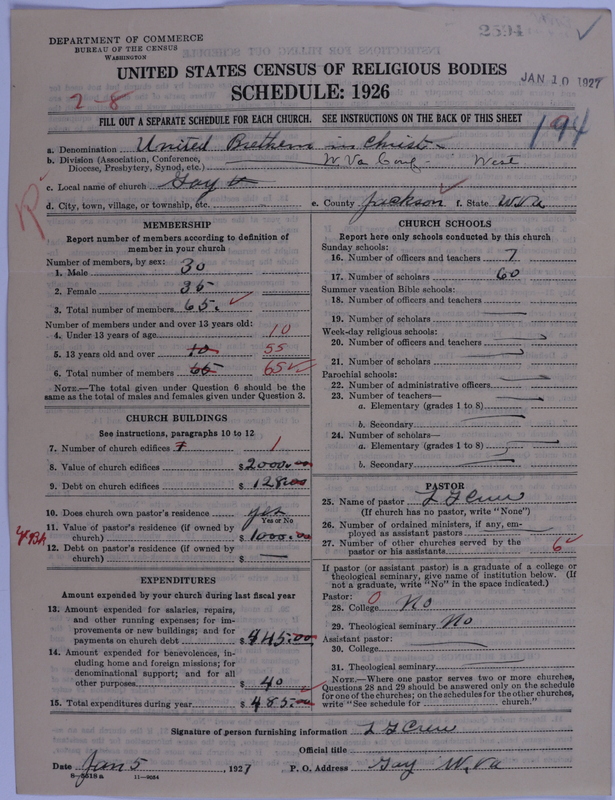 2594
DEPARTMENT OF COMMERCE
BUREAU OF THE CENSUS
WASHINGTON
UNITED STATES CENSUS OF RELIGIOUS BODIES
JAN 10 1927
SCHEDULE: 1926
2-8
FILL OUT A SEPARATE SCHEDULE FOR EACH CHURCH. SEE INSTRUCTIONS ON THE BACK OF THIS SHEET
194
a. Denomination United Brethern in Christ
b. Division (Association, Conference, Diocese, Presbytery, Synod, etc.) W Va Conf - West
c. Local name of church Gay
d. City, town, village, or township, etc. e. County Jackson f. State W Va
MEMBERSHIP
Report number of members according to definition of
member in your church
Number of members, by sex:
1. Male 30
2. Female 35
3. Total number of members 65.
Number of members under and over 13 years old:
4. Under 13 years of age 10
5. 13 years old and over 10 55
6. Total number of members 65 65
NOTE.—The total given under Question 6 should be the
same as the total of males and females given under Question 3.
CHURCH BUILDINGS
See instructions, paragraphs 10 to 12
7. Number of church edifices 1 1
8. Value of church edifices $ 2000.00
9. Debt on church edifices $ 128.00
10. Does church own pastor's residence yes
Yes or No
11. Value of pastor's residence (if owned by
church) $ 1000.00
12. Debt on pastor's residence (if owned by
church) $ —
EXPENDITURES
Amount expended by your church during last fiscal year
13. Amount expended for salaries, repairs,
and other running expenses; for im-
provements or new buildings; and for
payments on church debt $ 445.00
14. Amount expended for benevolences, in-
cluding home and foreign missions; for
denominational support; and for all
other purposes $ 40
15. Total expenditures during year $ 485.00
CHURCH SCHOOLS
Report here only schools conducted by this church
Sunday schools:
16. Number of officers and teachers 7
17. Number of scholars 60
Summer vacation Bible schools:
18. Number of officers and teachers
19. Number of scholars
Week-day religious schools:
20. Number of officers and teachers
21. Number of scholars
Parochial schools:
22. Number of administrative officers
23. Number of teachers—
a. Elementary (grades 1 to 8)
b. Secondary
24. Number of scholars—
a. Elementary (grades 1 to 8)
b. Secondary
PASTOR
25. Name of pastor
(If church has no pastor, write "None")
26. Number of ordained ministers, if any, em-
ployed as assistant pastors
27. Number of other churches served by the
pastor or his assistants 6
If pastor (or assistant pastor) is a graduate of a college or
theological seminary, give name of institution below. (If
not a graduate, write "No" in the space indicated.)
Pastor: 0
28. College No
29. Theological seminary No
Assistant pastor:
30. College
31. Theological seminary
NOTE.—Where one pastor serves two or more churches,
Questions 28 and 29 should be answered only on the schedule
for one of the churches; on the schedules for the other churches,
write "See schedule for church."
Signature of person furnishing information
Official title
Date Jan 5, 1927 P. O. Address Gay W. Va
8-5518a 11-9034